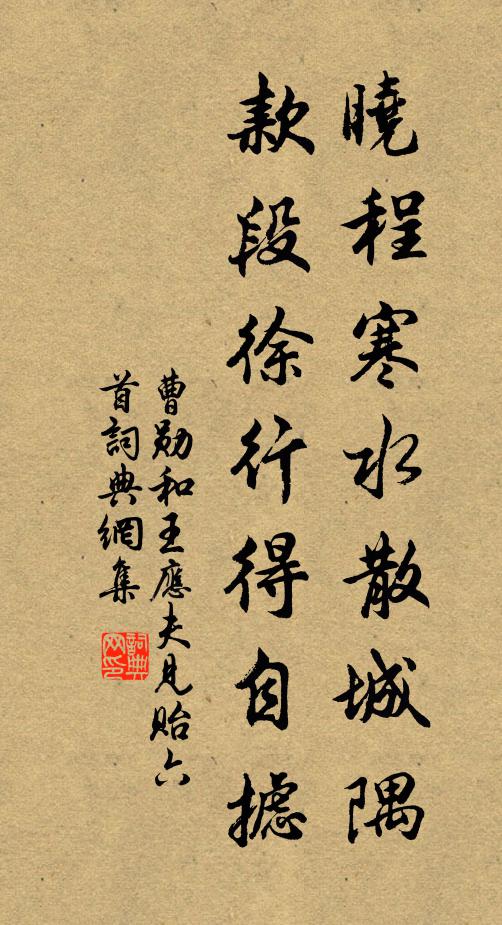 曉程寒水散城隅
款段徐行得自攄
曹勛和王應夫見貽六
首詞典網集
詞典網印